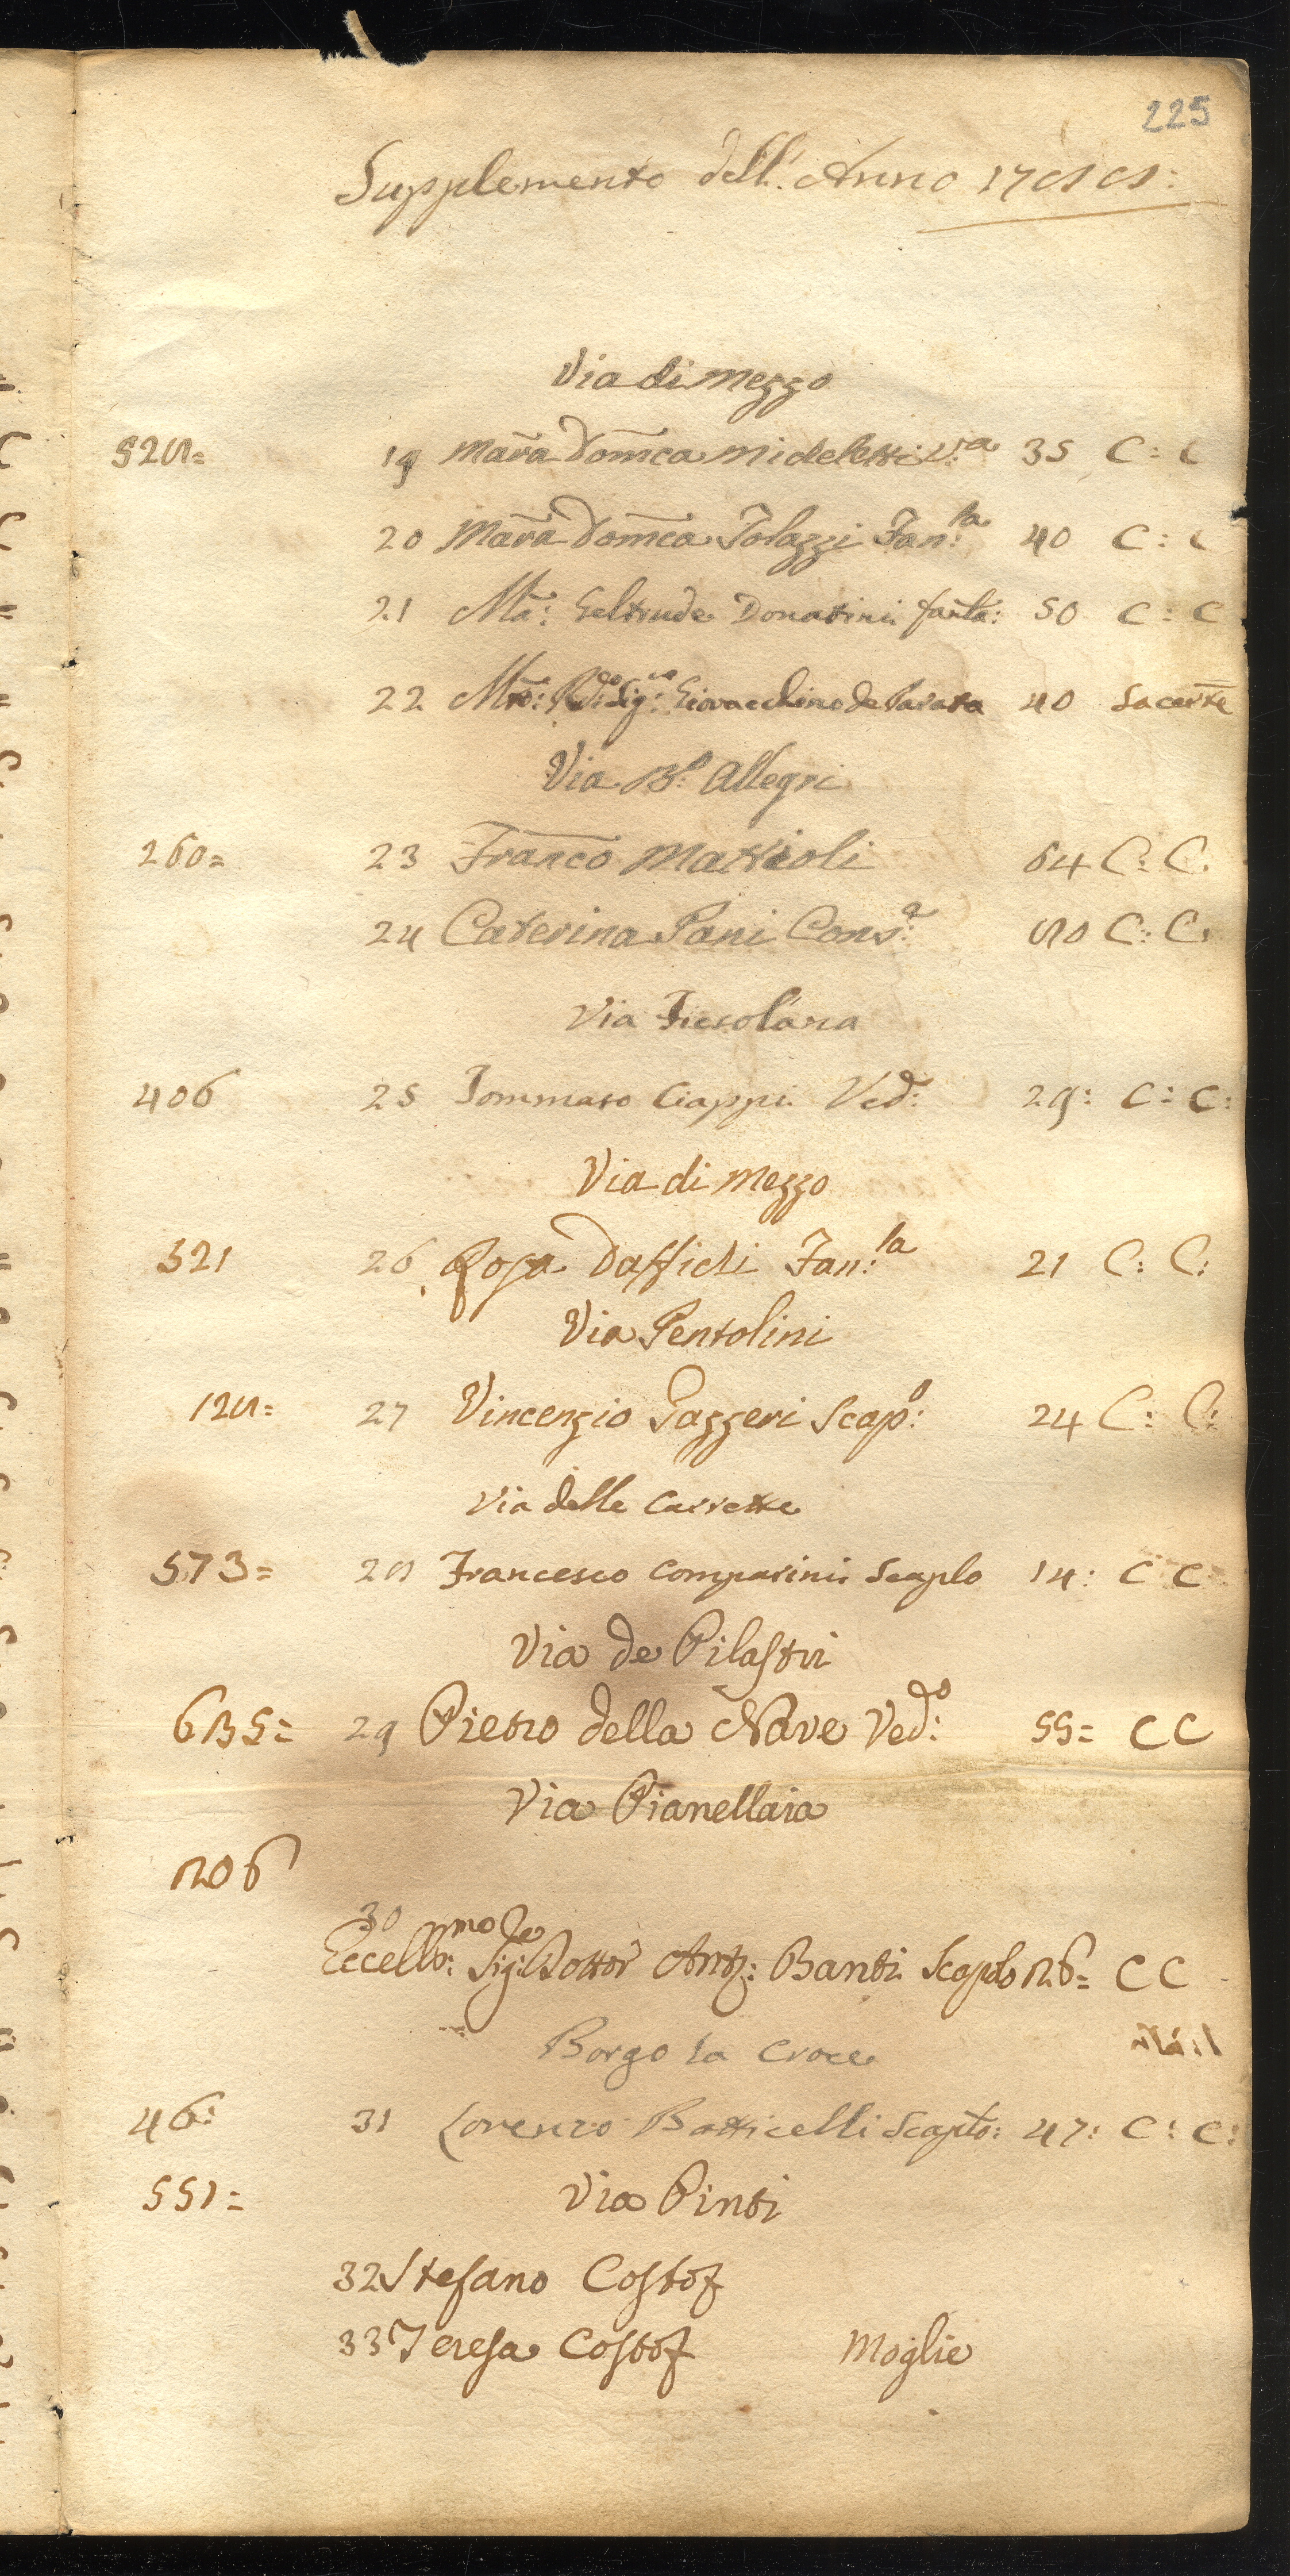 225
Supplemento dell'Anno 1788:
Via di Mezzo
528= 19 Mar̃a Dom̃ca Nideletti V:a 35 C: C
20 Mar̃a Dom̃ca Tolazzi Fan:la 40 C: C
21 Mã: Geltrude Donatini fanla: 50 C: C
22 Mto: Rdo: Sig:re Giovacchino de Parata 40 Sacerte
Via Bo: Allegri
260= 23 Franco Mattioli 64 C: C:
24 Caterina Pani Cons:a 80 C: C:
Via Fiesolana
406 25 Tommaso Ciappi Ved: 29: C: C:
Via di Mezzo
521 26 Rosa Daffichi Fan:la 21 C: C:
Via Pentolini
128= 27 Vincenzio Gazzeri Scapo: 24 C: C:
Via delle Carrette
573= 28 Francesco Comparini Scaplo 14: C C
Via de Pilastri
685= 29 Pietro della Nave Vedo: 55= C C
Via Pianellaia
806
30
Eccellmo: Sigre: Dottor Anto: Banti Scapolo 26= C C
Borgo la Croce
46: 31 Lorenzo Batticelli Scaplo: 47: C: C:
551= Via Pinti
32 Stefano Costof
33 Teresa Costof Moglie